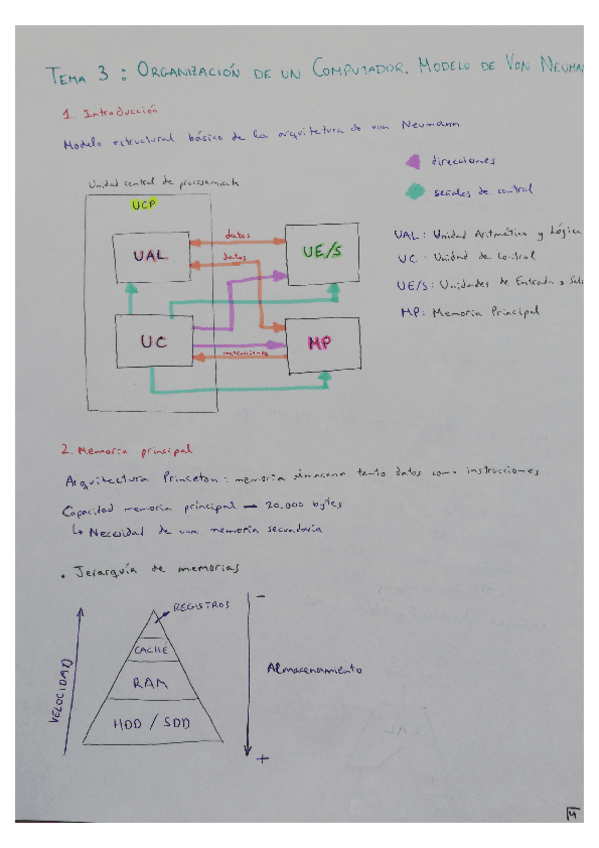 TEMA 3: ORGANIZACIÓN DE UN COMPUTADOR. MODELO DE VON NEUMA
1. Introducción
Modelo estructural básico de la arquitetura de von Neumann
direcciones
señales de control
Unidad central de procesamiento
UCP
UAL
datos
UE/S
datos
UC
MP
instrucciones
UAL: Unidad Aritmético y Lógica
UC: Unidad de Control
UE/S: Unidades de Entrada y Sal
MP: Memoria Principal
2. Memoria principal
Arquitectura Princeton: memoria almacena tanto datos como instrucciones
Capacidad memoria principal — 20.000 bytes
↳ Necesidad de una memoria secundaria
• Jerarquía de memorias
VELOCIDAD
REGISTROS
CACHÉ
RAM
HDD / SDD
-
Almacenamiento
+